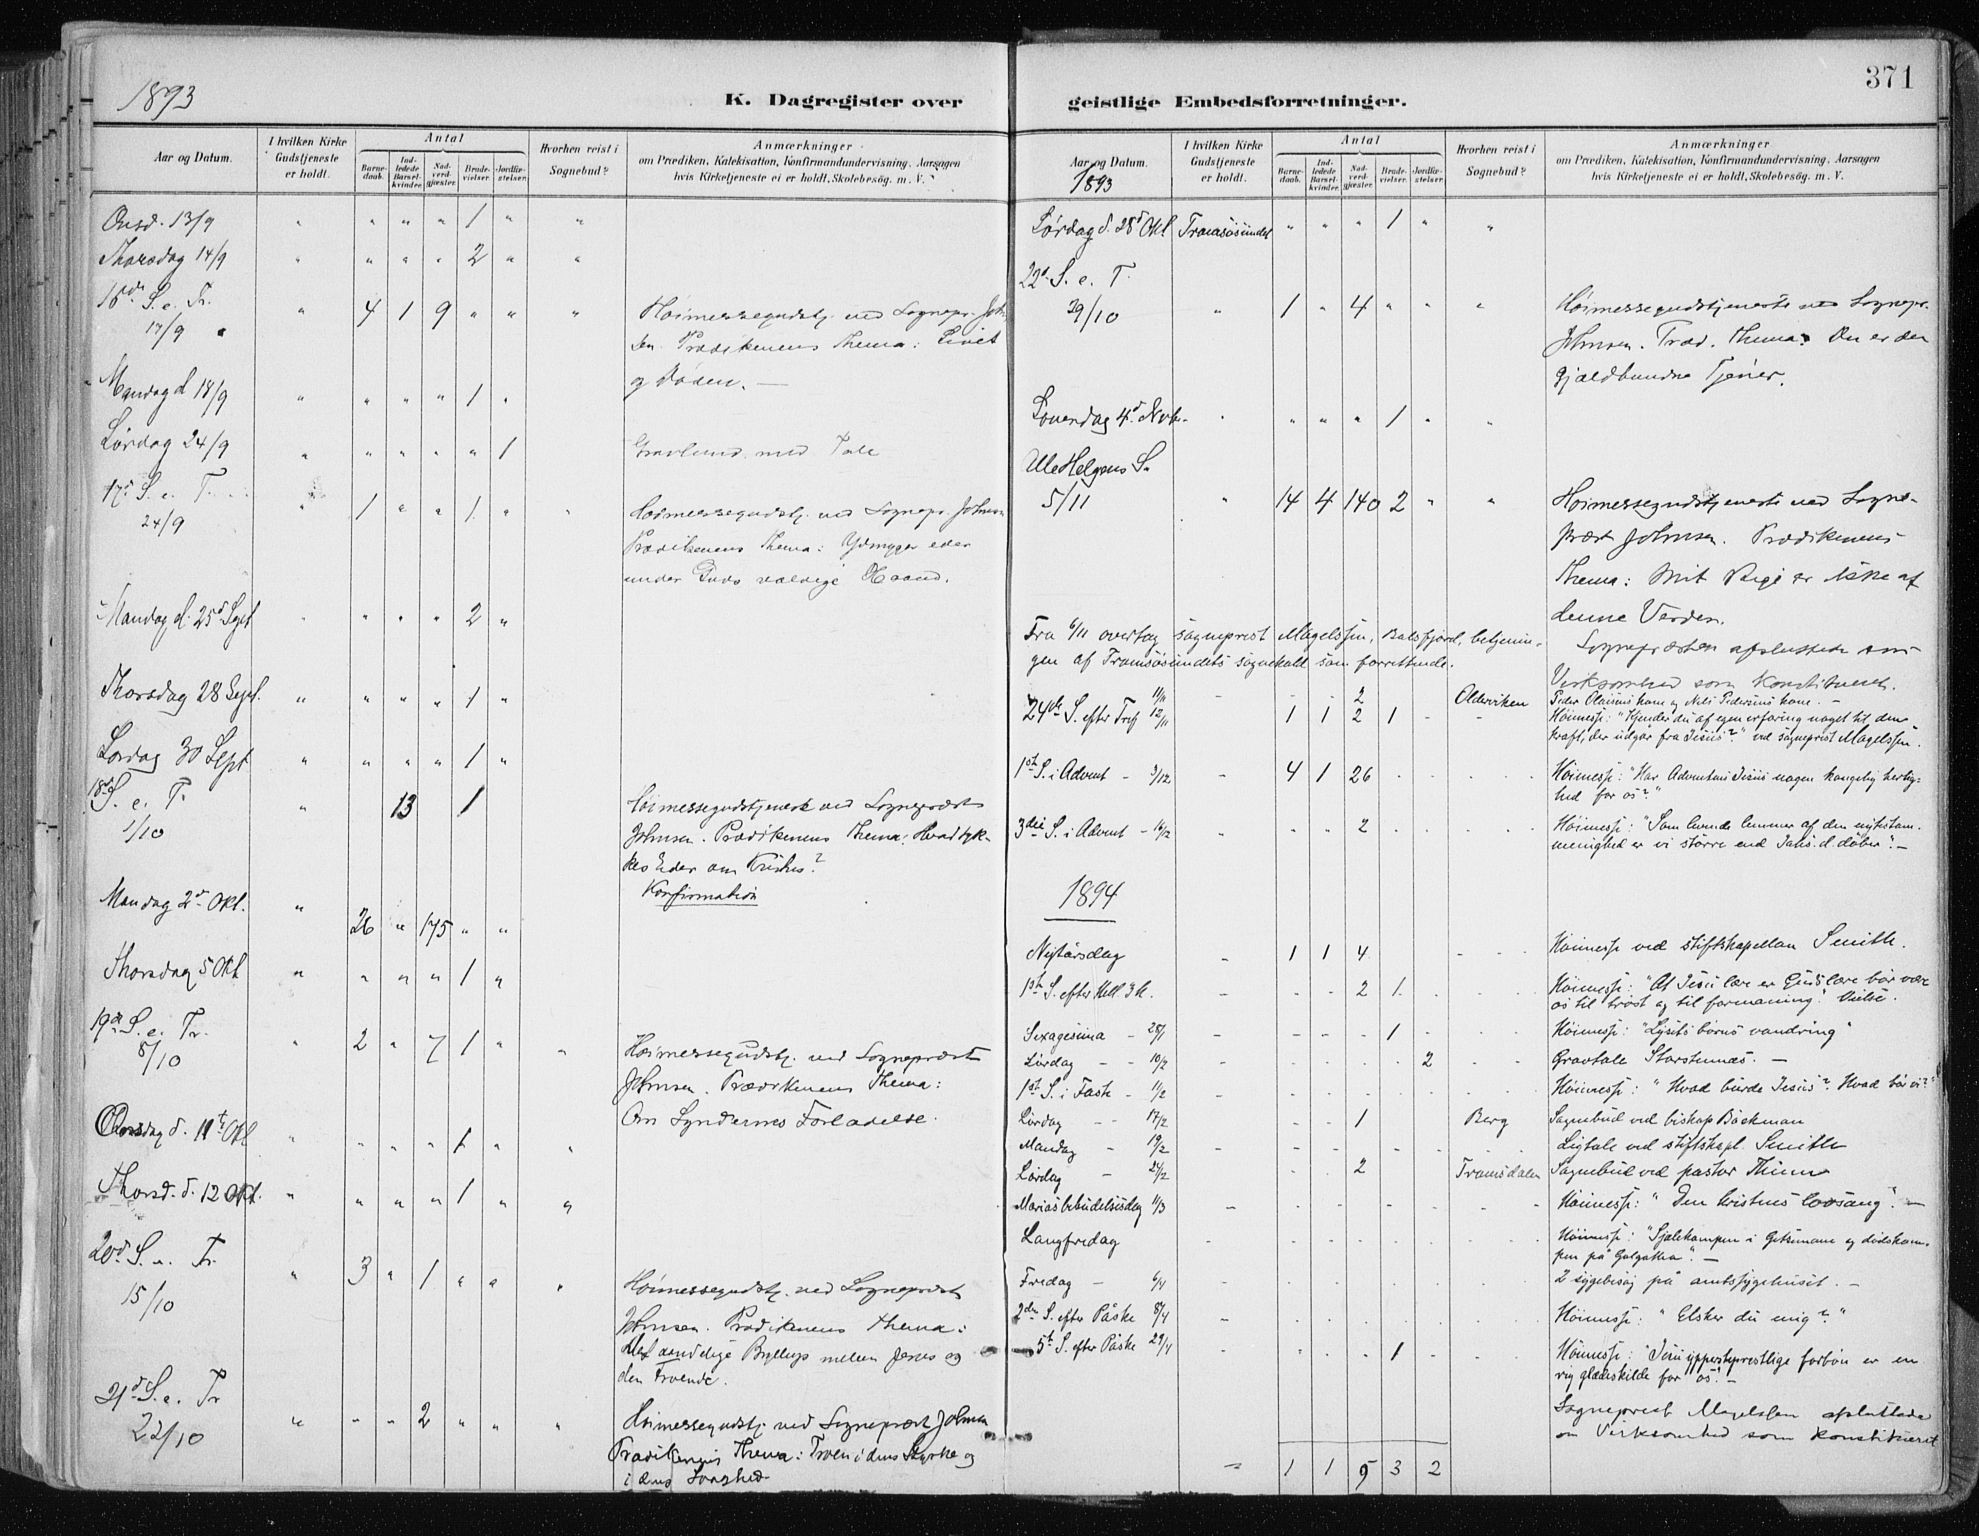 1893
K. Dagregister over
Aar og Datum.
I hvilken Kirke Gudstjeneste er holdt.
Antal
Barnedaab.
Indledede Barselkvinder.
Nadverdgjæster.
Brudevielser.
Jordfæstelser.
Hvorhen reist i Sognebud?
Anmærkninger
om Prædiken, Katekisation, Konfirmandundervisning, Aarsagen
hvis Kirketjeneste ei er holdt, Skolebesøg. m. V.
Onsd. 13/9 " " " " 1 " "
Thorsdag 14/9 " " " " 2 " "
16de S. e. Tr.
17/9 " 4 1 9 " " " Høimessegudstj. ved Sognepr. John-
sen. Prædikenens Thema: Livet
og Døden. —
Mandag d 18/9 " " " " 1 "
Lørdag 24/9 " " " " " 1 Gravlund med Tale
17d S. e. T.
24/9 " 1 " " 1 " " Høimessegudstj. ved Sognepr. Johnsen
Prædikenens Thema: Ydmyger eder
under Guds vældige Haand.
Mandag d. 25d Sept " " " " 2 "
Thorsdag 28 Sept. " " " " 1 "
Lørdag 30 Sept " " " " 1 "
18de S. e. T.
1/10 " 13 1 Høimessegudstjeneste ved Sogneprest
Johnsen. Prædikenens Thema: Hvad tyk-
kes Eder om Kristus?
Konfirmation
Mandag 2d Okt. " 26 " 175 " "
Thorsdag 5 Okt " " " " 1 "
19de S. e. Tr.
8/10 " 2 " 7 1 " " Høimessegudstj. ved Sogneprest
Johnsen. Prædikenens Thema:
Om Syndernes Forladelse.
Onsdag d. 11t Okt " " " " 1 " "
Thorsd. d. 12 Okt. " " " " 1 " "
20d S. e. Tr.
15/10 " 3 " 1 " " " Høimessegudstj. ved Sogneprest
Johnsen. Prædikenens Thema:
Det aandelige Bryllup mellem Jesus og
den troende.
21d S. e. Tr
22/10 " " " 2 " " " Høimessegudstj. ved Sogneprest Johnsen
Prædikenens Thema: Troen i dens Styrke og
i dens Svaghed
371
geistlige Embedsforretninger.
Aar og Datum.
1893
I hvilken Kirke Gudstjeneste er holdt.
Antal
Barnedaab.
Indledede Barselkvinder.
Nadverdgjæster.
Brudevielser.
Jordfæstelser.
Hvorhen reist i Sognebud?
Anmærkninger
om Prædiken, Katekisation, Konfirmandundervisning, Aarsagen
hvis Kirketjeneste ei er holdt, Skolebesøg. m. V.
Lørdag d. 28d Okt Tromsøsundet " " " 1 " "
22d S. e. T.
29/10 " 1 " 4 " " " Høimessegudstjeneste ved Sognepr.
Johnsen. Præd. Thema: Den er den
gjældbundne Tjener.
Løverdag 4d Novb. " " " " 1 " "
Alle Helgens S.
5/11 " 14 4 140 2 " " Høimessegudstjeneste ved Sogne-
prest Johnsen. Prædikenens
Thema: Mit Rige er ikke af
denne Verden.
Fra 6/11 overtog sogneprest Magelssen, Balsfjord, betjenin-
gen af Tromsøsundets sognekald som forrettende.
Sognepresten afsluttede sin
Virksomhed som Konstitueret.
11/11 - - - 2 Olderviken Peder Olaisens kone og Nils Pedersens kone. -
24de S. efter Tref 12/11 1 1 2 1 - - Høimesse: "Kjender du af egen erfaring noget til den
kraft, der udgår fra Jesus?" ved sogneprest Magelssen.
1st S. i Advent - 3/12 - 4 1 26 - - - Høimesse: "Har Adventens Jesus nogen kongelig herlig-
hed for os?"
3die S. i Advent - 16/2 " " " 2 - - - Høimesse: "Som levende lemmer af den nytestam.
menighed er vi større end Johs. d. døber". -
1894
Nytårsdag - 1 1 4 - - - Høimesse ved stiftskapellan Smith.
1st S. efter Hell. 3 K. - - - 2 1 - - Høimesse: "At Jesu lære er Guds lære bør være
os til trøst og til formaning". Vielse.
Sexagesima - 28/1 - - - - 1 - - Høimesse: "Lysets børns vandring"
Lørdag - 10/2 - - - - - 2 - Gravtale Storstennæs. -
1st S. i Faste - 11/2 - - - - - - - Høimesse: "Hvad burde Jesus? Hvad bør vi?"
Lørdag - - 17/2 - - - 1 Berg Sognebud ved biskop Bøckman
Mandag - 19/2 - - - - - Ligtale ved stiftskapl. Smith
Lørdag - 24/2 - - 2 Tromsdalen Sognebud ved pastor Thime
Marias bebudelsesdag 11/3 - - - - - - - Høimesse: "Den kristnes lovsang". -
Langfredag - - - - - - - Høimesse: "Sjælekampen i Getsemane og dødskam-
pen på Golgatha". -
Fredag - 6/4 - - - - - - 2 sygebesøg på amtssygehuset. -
2den S. efter Påske 8/4 - - - - - - - Høimesse: "Elsker du mig?"
5t S. efter Påske 29/4 - - - - 1 - - Høimesse: "Jesu ypperstepresteligeforbøn er en
rig glædeskilde for os". -
Sogneprest Magelssen afsluttede
sin Virksomhed som Konstitueret
- 1 1 9 3 2